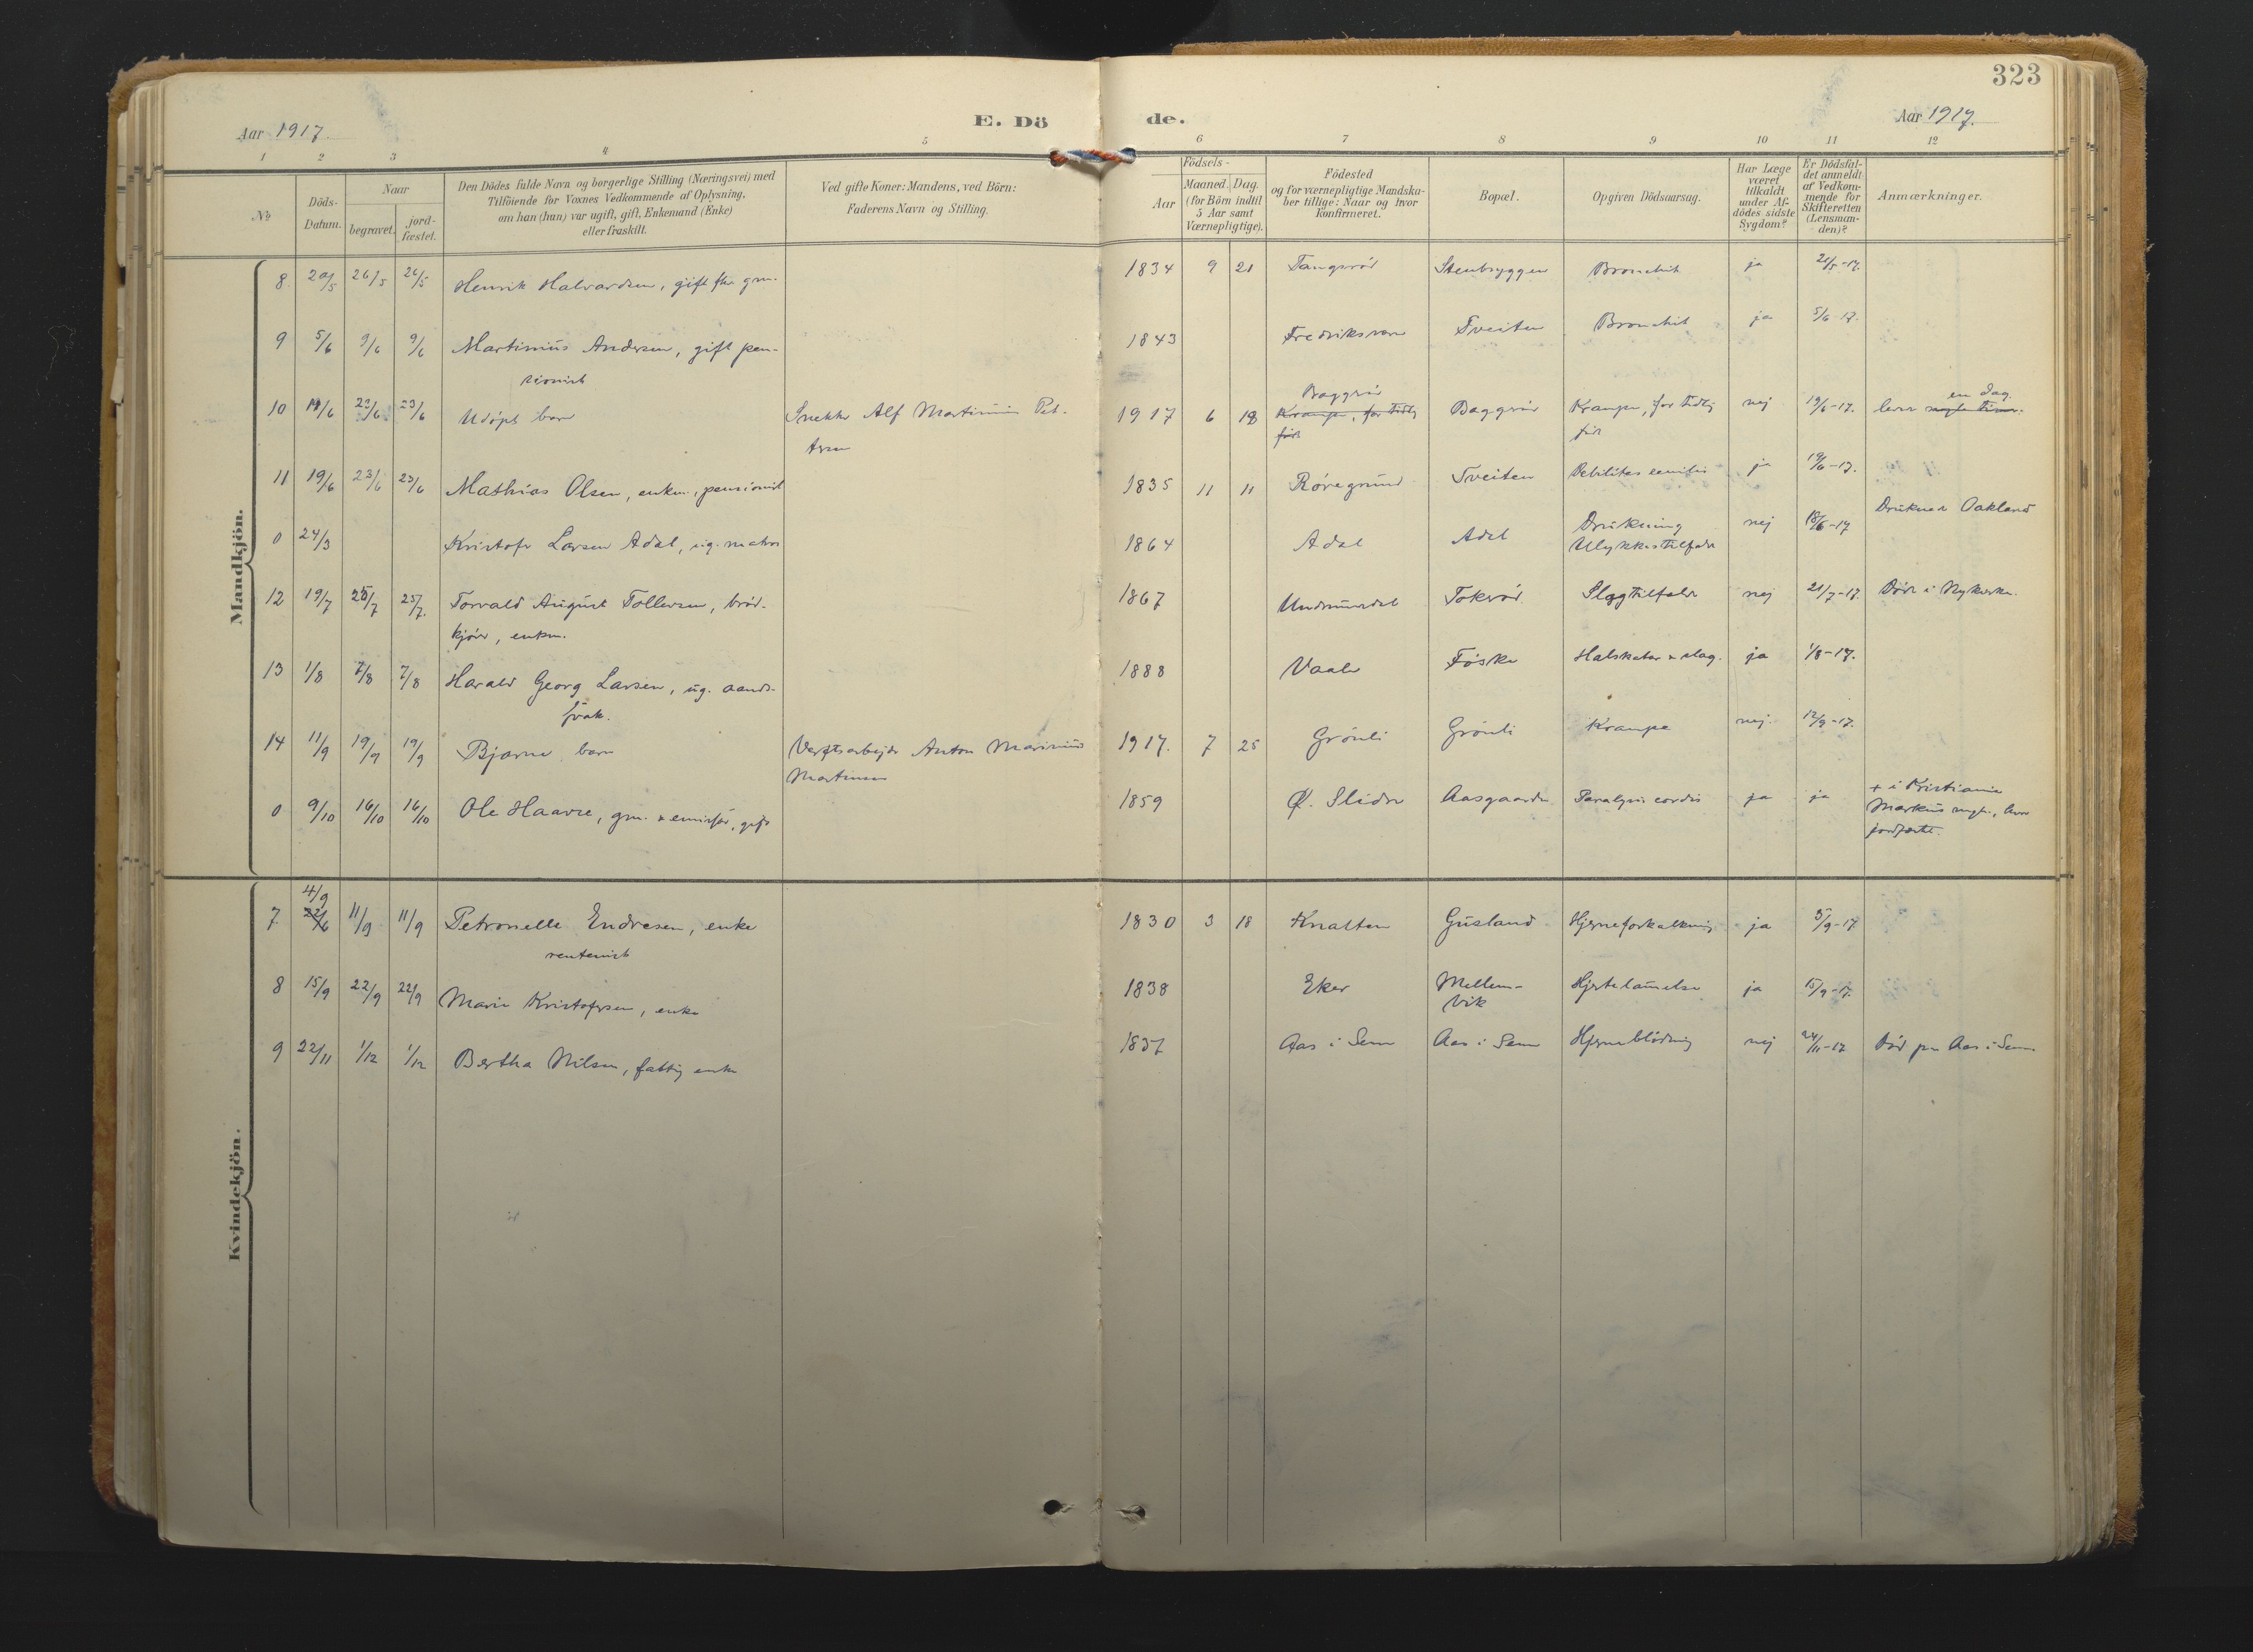 323
Aar 1917.
E. Dö
de.
Aar 1917.
1 2 3 4 5 6 7 8 9 10 11 12
No
Döds-Datum.
Naar
begravet.
jord-fæstet.
Den Dödes fulde Navn og borgerlige Stilling (Næringsvei) med
Tilföiende for Voxnes Vedkommende af Oplysning,
om han (hun) var ugift, gift, Enkemand (Enke)
eller fraskilt.
Ved gifte Koner: Mandens, ved Börn:
Faderens Navn og Stilling.
Födsels-
Aar
Maaned. Dag.
(for Börn indtil
5 Aar samt
Værnepligtige).
Födested
og for værnepligtige Mandska-
ber tillige: Naar og hvor
konfirmeret.
Bopæl.
Opgiven Dödsaarsag.
Har Læge
været
tilkaldt
under Af-
dödes sidste
Sygdom?
Er Dödsfal-
det anmeldt
af Vedkom-
mende for
Skifteretten
(Lensman-
den)?
Anmærkninger.
Mandkjön.
8 20/5 26/5 26/5 Henrik Halvardsen, gift gm. 1834 9 21 Tangsrød Stenbryggen Bronchit ja 21/5-17.
9 5/6 9/6 9/6 Martinius Andersen, gift pen- 1843 Fredriksværn Tveiten Bronchit ja 5/6-17.
sionist
Baggrød en dag.
10 19/6 23/6 23/6 Udøpt barn Snekker Alf Martinius Pet- 1917 6 18 Krampe, for tidlig Baggrød Krampe, for tidlig nej 19/6-17. lever nogle timer.
ersen født født
11 19/6 23/6 23/6 Mathias Olsen, enkm., pensionist 1835 11 11 Røregrund Tveiten Debilitas senilis ja 19/6-17.
0 24/3 Kristofr Larsen Adal, ug. matros 1864 Adal Adal Drukning nej 18/6-17 Druknet Oakland
Ulykkestilfælde
12 19/7 25/7 25/7. Torvald August Tollevsen, brød- 1867 Undrumsdal Tokrød Slagtilfælde nej 21/7-17. Død i Nykirke.
kjører, enkm.
13 1/8 7/8 7/8 Harald Georg Larsen, ug. aands- 1888 Vaale Føske Halskatar & slag. ja 1/8-17.
svak.
14 11/9 19/9 19/9 Bjarne, barn Verftsarbejder Anton Marinius 1917. 7 25 Grønli Grønli Krampe nej. 12/9-17.
Martinsen
0 9/10 16/10 16/10 Ole Haavre, gm. & emissær, gift 1859 Ø. Slidre Aasgaarden Paralysis cordis ja ja + i Kristiania
Markus mgh.,
jordfæstet.
Kvindekjön.
4/9
7. 22/6 11/9 11/9 Petronelle Endresen, enke 1830 3 18 Knatten Gusland Hjerneforkalkning ja 5/9-17
rentenist
8 15/9 22/9 22/9 Marie Kristofersen, enke 1838 Eker Mellem- Hjertelammelse ja 15/9-17.
vik
9 22/11 1/12 1/12 Bertha Nilsen, fattig enke 1837 Aas i Sem Aas i Sem Hjerneblødning nej 24/11-17 Død paa Aas i Sem